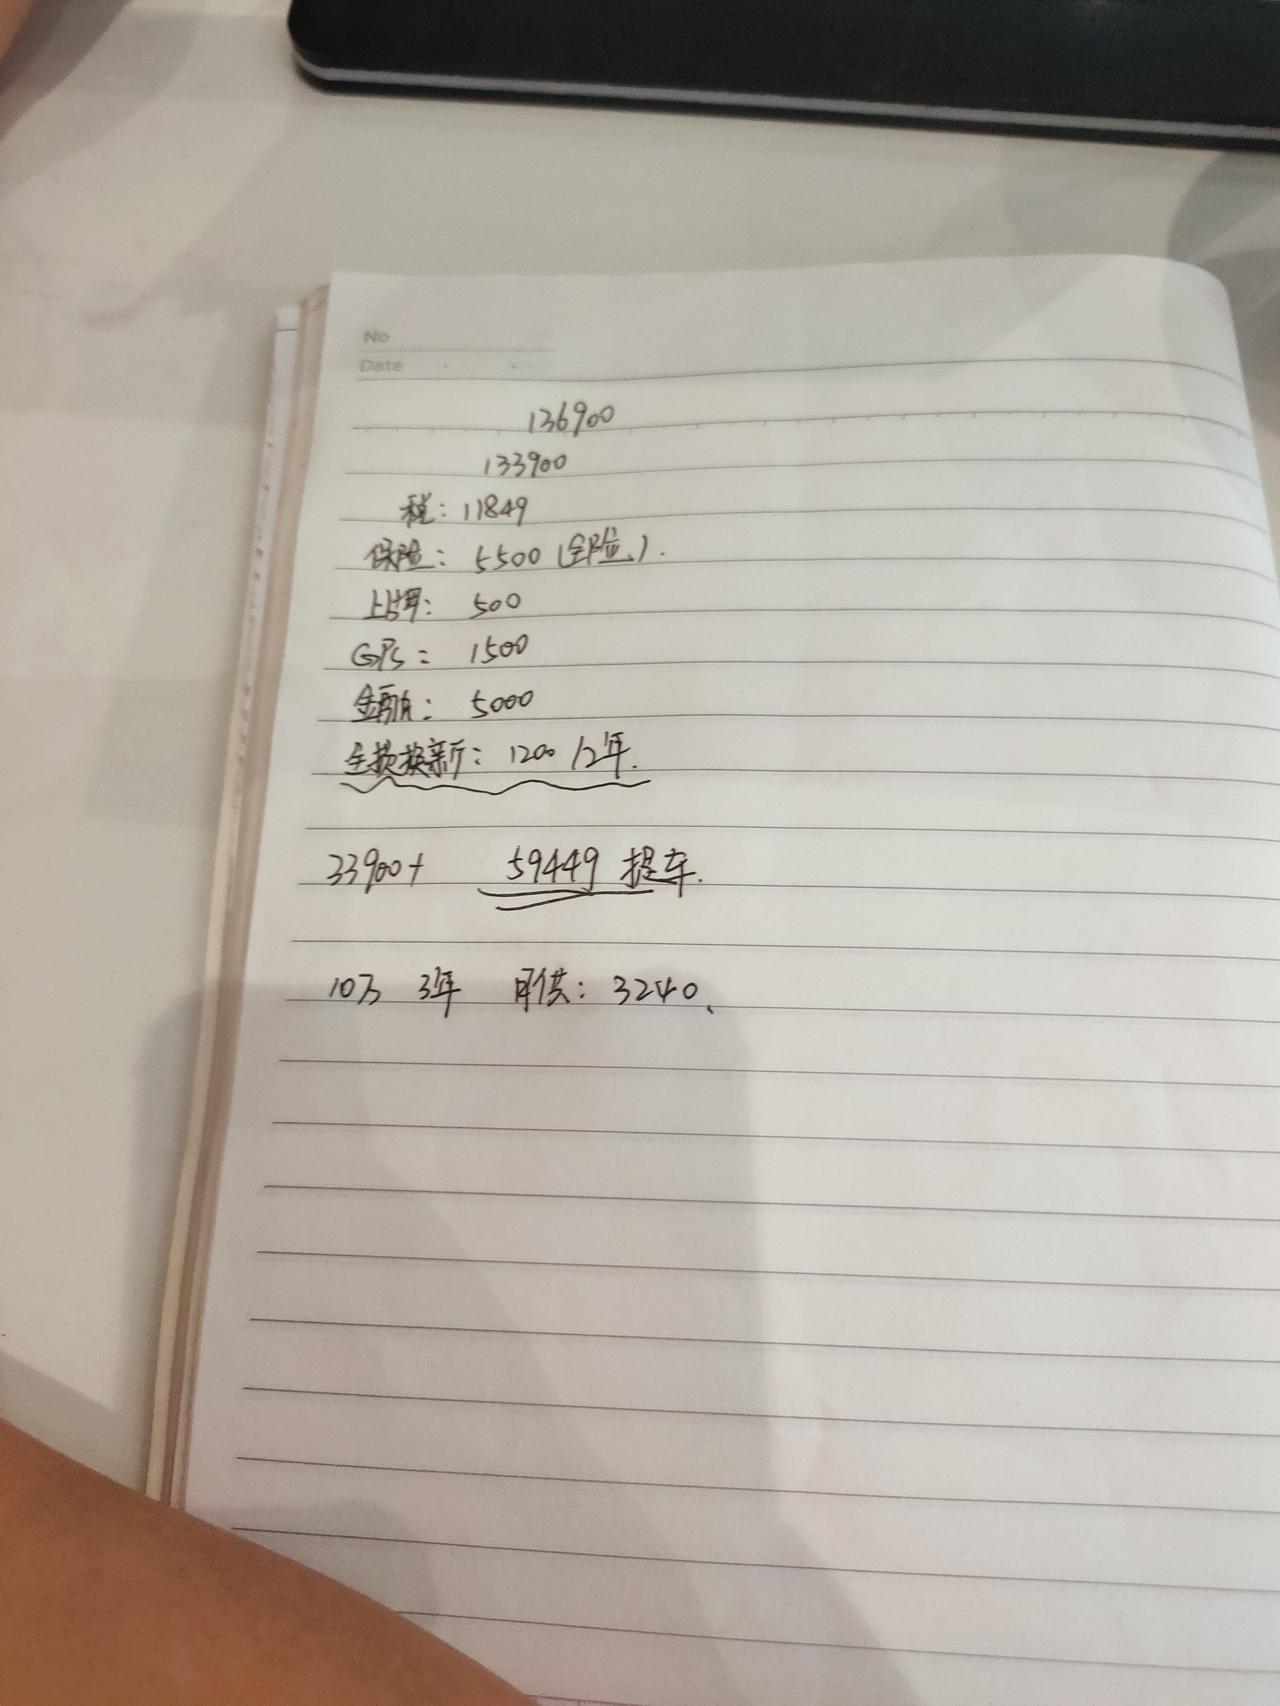 No
Date
136900
133900
税: 11849
保险: 5500 (全险).
上牌: 500
GPS: 1500
金融: 5000
全损换新: 1200 /2年.
33900+ 59449 提车.
10万 3年 月供: 3240、